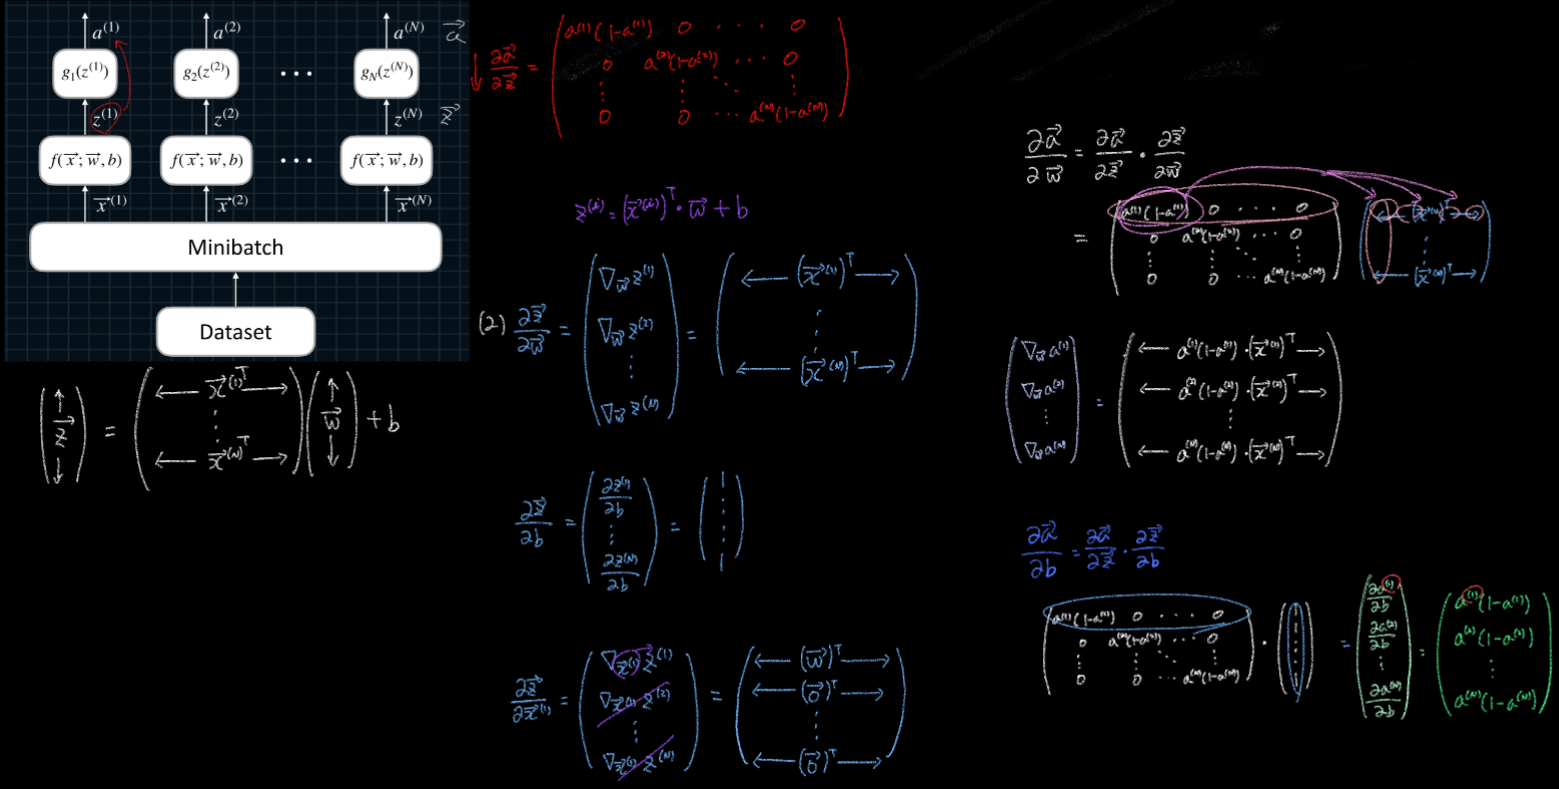 a⁽¹⁾ a⁽²⁾ a⁽ᴺ⁾ a⃗
g₁(z⁽¹⁾) g₂(z⁽²⁾) ⋯ g_N(z⁽ᴺ⁾)
z⁽¹⁾ z⁽²⁾ z⁽ᴺ⁾ z⃗
f(x⃗; w⃗, b) f(x⃗; w⃗, b) ⋯ f(x⃗; w⃗, b)
x⃗⁽¹⁾ x⃗⁽²⁾ x⃗⁽ᴺ⁾
Minibatch
Dataset
( ↑ z⃗ ↓ ) = ( ← x⃗⁽¹⁾ᵀ → ⋮ ← x⃗⁽ᴺ⁾ᵀ → ) ( ↑ w⃗ ↓ ) + b
↓ ∂a⃗/∂z⃗ =
( a⁽¹⁾(1-a⁽¹⁾) 0 ⋯ 0
0 a⁽²⁾(1-a⁽²⁾) ⋯ 0
⋮ ⋮ ⋱ ⋮
0 0 ⋯ a⁽ᴺ⁾(1-a⁽ᴺ⁾) )
z⁽ⁱ⁾ = (x⃗⁽ⁱ⁾)ᵀ · w⃗ + b
(2) ∂z⃗/∂w⃗ = ( ∇w⃗ z⁽¹⁾ ∇w⃗ z⁽²⁾ ⋮ ∇w⃗ z⁽ᴺ⁾ ) = ( ← (x⃗⁽¹⁾)ᵀ → ⋮ ← (x⃗⁽ᴺ⁾)ᵀ → )
∂z⃗/∂b = ( ∂z⁽¹⁾/∂b ⋮ ∂z⁽ᴺ⁾/∂b ) = ( 1 ⋮ 1 )
∂z⃗/∂x⃗⁽¹⁾ = ( ∇x⃗⁽¹⁾ z⁽¹⁾ ∇x⃗⁽¹⁾ z⁽²⁾ ⋮ ∇x⃗⁽¹⁾ z⁽ᴺ⁾ ) = ( ← (w⃗)ᵀ → ← (0⃗)ᵀ → ⋮ ← (0⃗)ᵀ → )
∂a⃗/∂w⃗ = ∂a⃗/∂z⃗ · ∂z⃗/∂w⃗
= ( a⁽¹⁾(1-a⁽¹⁾) 0 ⋯ 0
0 a⁽²⁾(1-a⁽²⁾) ⋯ 0
⋮ ⋮ ⋱ ⋮
0 0 ⋯ a⁽ᴺ⁾(1-a⁽ᴺ⁾) ) ( ← (x⃗⁽¹⁾)ᵀ → ⋮ ← (x⃗⁽ᴺ⁾)ᵀ → )
( ∇w⃗ a⁽¹⁾ ∇w⃗ a⁽²⁾ ⋮ ∇w⃗ a⁽ᴺ⁾ ) =
( ← a⁽¹⁾(1-a⁽¹⁾)·(x⃗⁽¹⁾)ᵀ →
← a⁽²⁾(1-a⁽²⁾)·(x⃗⁽²⁾)ᵀ →
⋮
← a⁽ᴺ⁾(1-a⁽ᴺ⁾)·(x⃗⁽ᴺ⁾)ᵀ → )
∂a⃗/∂b = ∂a⃗/∂z⃗ · ∂z⃗/∂b
( a⁽¹⁾(1-a⁽¹⁾) 0 ⋯ 0
0 a⁽²⁾(1-a⁽²⁾) ⋯ 0
⋮ ⋮ ⋱ ⋮
0 0 ⋯ a⁽ᴺ⁾(1-a⁽ᴺ⁾) ) · ( 1 ⋮ 1 ) = ( ∂a⁽¹⁾/∂b ∂a⁽²⁾/∂b ⋮ ∂a⁽ᴺ⁾/∂b ) = ( a⁽¹⁾(1-a⁽¹⁾) a⁽²⁾(1-a⁽²⁾) ⋮ a⁽ᴺ⁾(1-a⁽ᴺ⁾) )